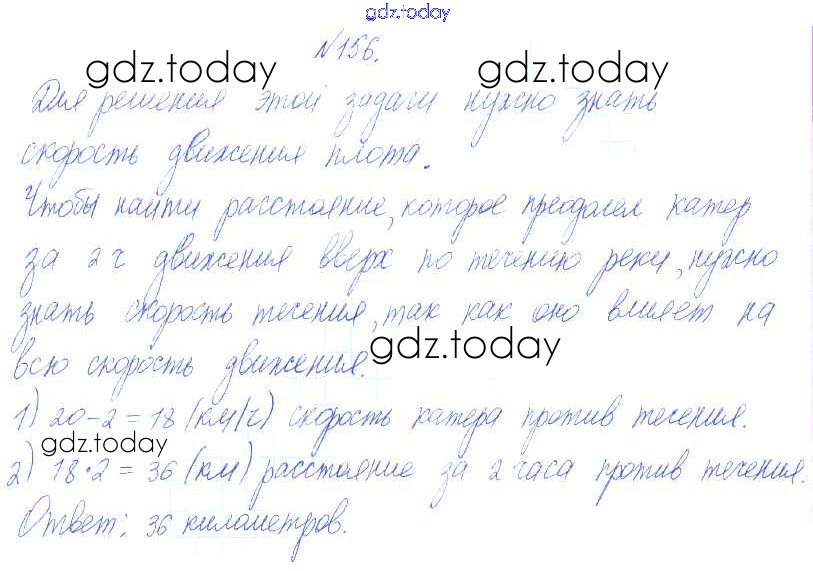 gdz.today
№156.
gdz.today gdz.today
Для решения этой задачи нужно знать
скорость движения плота.
Чтобы найти расстояние, которое преодолел катер
за 2 ч движения вверх по течению реки, нужно
знать скорость течения, так как оно влияет на
всю скорость движения.
gdz.today
1) 20-2=18 (км/ч) скорость катера против течения.
gdz.today
2) 18·2=36 (км) расстояние за 2 часа против течения.
Ответ: 36 километров.